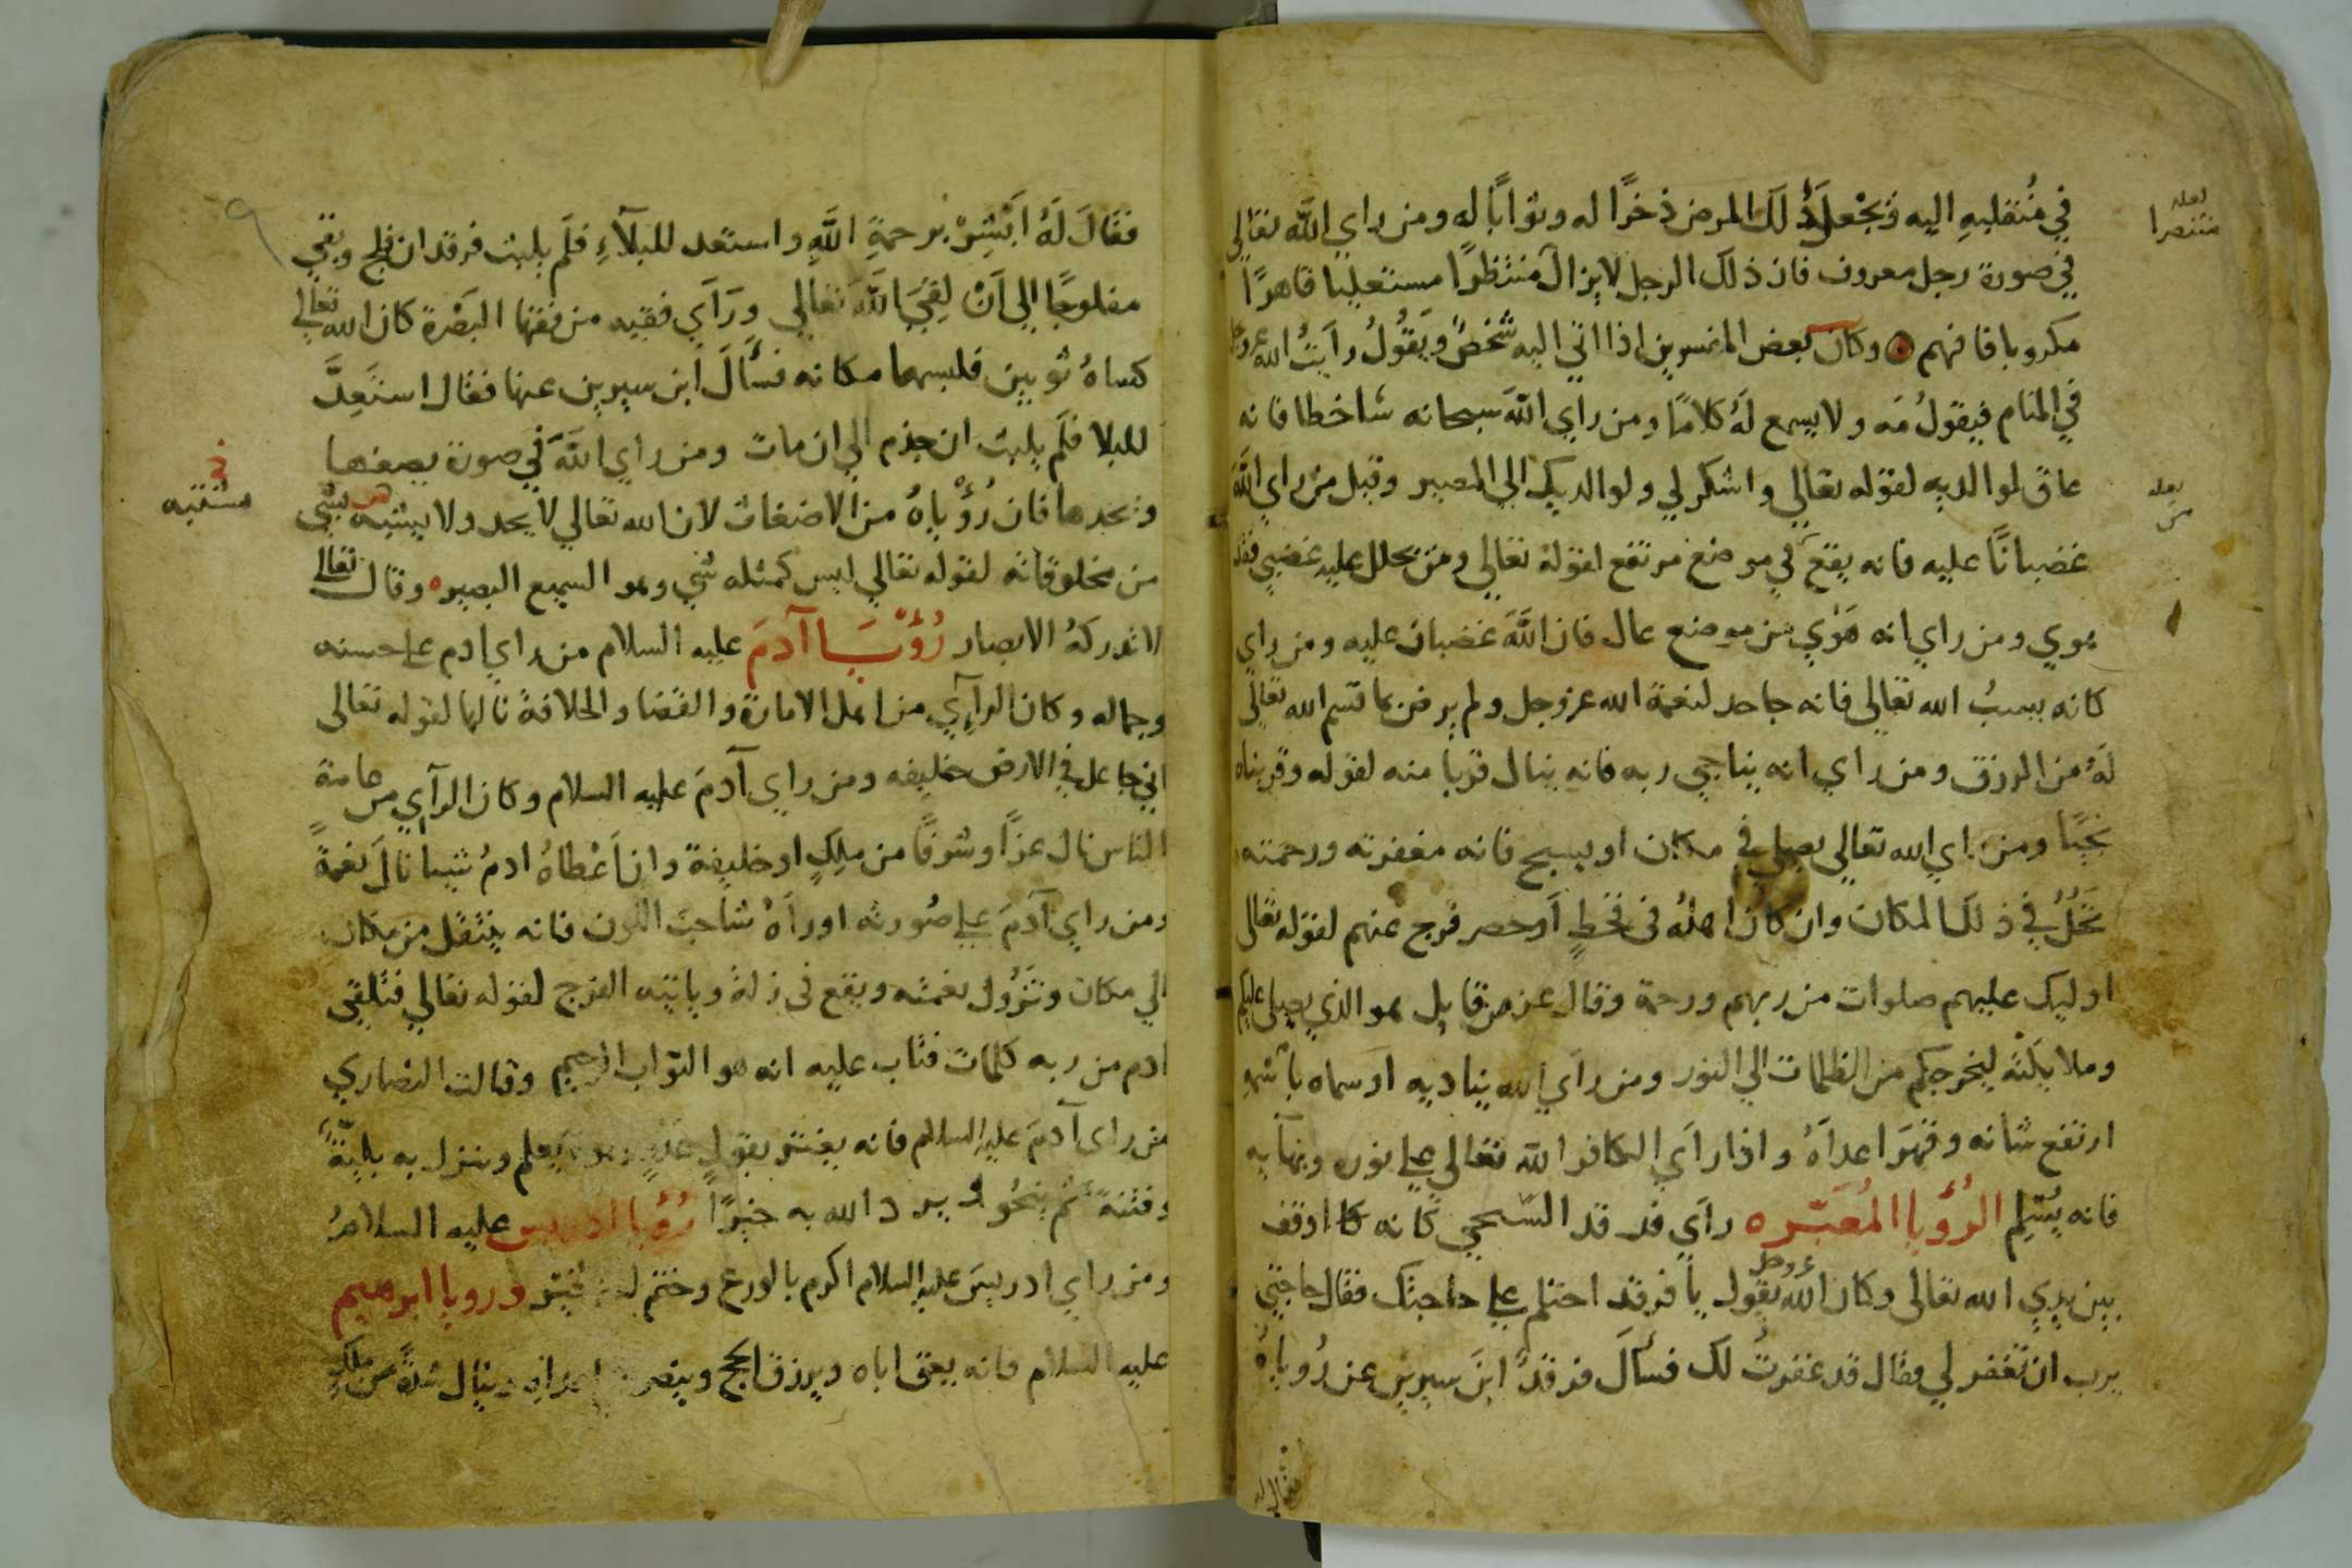 في منقلبهِ اليه وَيجْعل ذلك المرض ذخرًا له وثوابًا له ومن راي الله تعالي
في صورة رجل معروف فان ذلك الرجل لا يزال منتظرًا مستعليا قاهرًا
لعله منتصرا
مكروبا فافهم وكان بعض المفسرين اذا اتي اليه شخصٌ وَيَقُولُ رايتُ الله عز وجل
في المنام فيقولُ مَه ولا يسمع لَهُ كلامًا ومن راي اللَّه سبحانه ساخطا فانه
عاق لوالديه لقوله تعالي واشكر لي ولوالديك الي المصير وقيل من راي اللَّه
لعله من
غضبانًا عليه فانه يقع في موضع مرتفع لقوله تعالي ومن يحلل عليه غضبي فقد
هوي ومن راي انه هَوٰي من موضع عال فان اللَّهَ غضبان عليه ومن راي
كانه يسبُ الله تعالي فانه جاحد لنعمة الله عز وجل ولم يرض بما قسم الله تعالي
لهُ من الرزق ومن راي انه يناجي ربه فانه ينال قربا منه لقوله وقربناه
نجيًا ومن راي الله تعالي يصلي في مكان او يسبح فانه مغفرته ورحمته
تَحَلُّ في ذلك المكان وان كان اهلُه في قحطٍ أو حصر فرج عنهم لقوله تعالي
اوليك عليهم صلوات من ربهم ورحمة وقال عز من قايل هو الذي يصلي عليكم
وملايكته ليخرجكم من الظلمات الي النور ومن رآي الله يناديه او سماه باسمهِ
ارتفع شانه وقهَرَ اعداهُ واذا رآي الكافر الله تعالي علي نوره وبهآيه
فانه يُسْلِم الرُؤيا المُعَبّره رآي فرقد السَّنجي كانه كا اوقف
بين يدي الله تعالي وكان الله عز وجل يقول يا فرقد احتلم علي حاجتك فقال حاجتي
يرب ان تغفر لي فقال قد غفرتُ لك فسألَ فرقدٌ ابنَ سيرين عن رُوياهُ
فقال له
٩
فقالَ لَهُ اَبْشِرْ برحمةِ اللَّهِ واستعد للبلآءِ فلَم يلبث فرقد ان فلج وبقي
مفلوجًا الي اَنْ لِقيَ اللَّهَ تَعالي ورَآي فقيه من فقها البَصْرة كان الله تعالي
كساهُ ثوبين فلبسهما مكانه فسأَلَ ابن سيرين عنها فقال استَعِدَّ
للبلا فلَم يلبث ان جذم الي ان مات ومن راي اللَّهَ في صورة يصفها
ويحدها فان رُؤْياهُ من الاضغاث لان الله تعالي لا يحد ولا يشبه بشي
من مخلوقاته لقوله تعالي ليس كمثله شي وهو السميع البصير وقال تعالي
لا تدركهُ الابصار رُؤْيَا آدمَ عليه السلام من راي ادم علي حسنه
وجماله وكان الرآي من اهل الامارة والقضا والخلافة نالها لقوله تعالى
اني جاعل في الارض خليفه ومن راي آدمَ عليه السلام وكان الرآي من عامة
الناس نال عزًا وشرفًا من ملِكٍ او خليفة وان اَعْطاهُ ادمُ شيا نالَ نعمةً
ومن راي آدمَ علي صُورته او رآهُ شاحبَ اللون فانه ينتقل من مكان
الي مكان وتَزُول نعمته ويقع في زلة وياتيه الفرج لقوله تعالي فتلقي
ادم من ربه كلمات فتاب عليه انه هو التواب الرحيم وقالت النصاري
من راي آدمَ عليه السلام فانه يغتر بقول وينزل به بليّة
وفتنة ثم ينجُو ويرد الله به خيرًا رُؤيا ادريس عليه السلامُ
ومن راي ادريسَ عليه السلام اكرم بالورع وختم له بخير ورويا ابرهيم
عليه السلام فانه يعق اباه ويرزق الحج وينصر وينال شدةً من ملكٍ